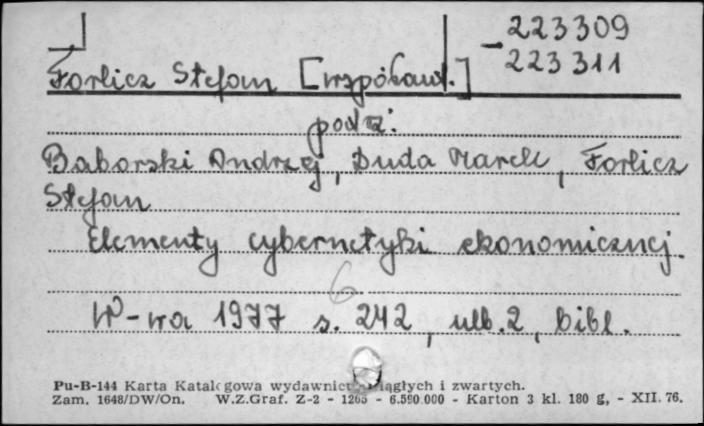 223309
Forlicz Stefan [współaut.] - 223311
podz:
Baborski Andrzej, Duda Marek, Forlicz
Stefan
Elementy cybernetyki ekonomicznej.
6
W-wa 1977 s. 242, nlb. 2, bibl.
Pu-B-144 Karta Katalogowa wydawnictw ciągłych i zwartych.
Zam. 1648/DW/On. W.Z.Graf. Z-2 - 1265 - 6.590.000 - Karton 3 kl. 180 g, - XII. 76.